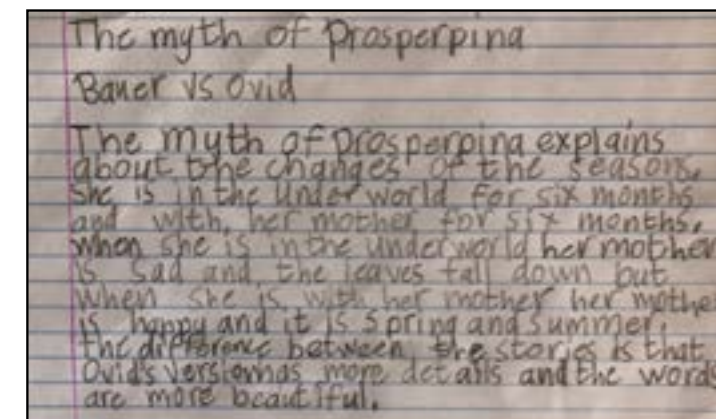 The myth of Prosperpina
Bauer vs Ovid
The myth of Prosperpina explains
about the changes of the seasons.
She is in the underworld for six months
and with, her mother for six months.
when she is in the underworld her mother
is sad and the leaves fall down but
when she is with her mother her mother
is happy and it is spring and summer.
the difference between the stories is that
Ovid's version has more details and the words
are more beautiful.